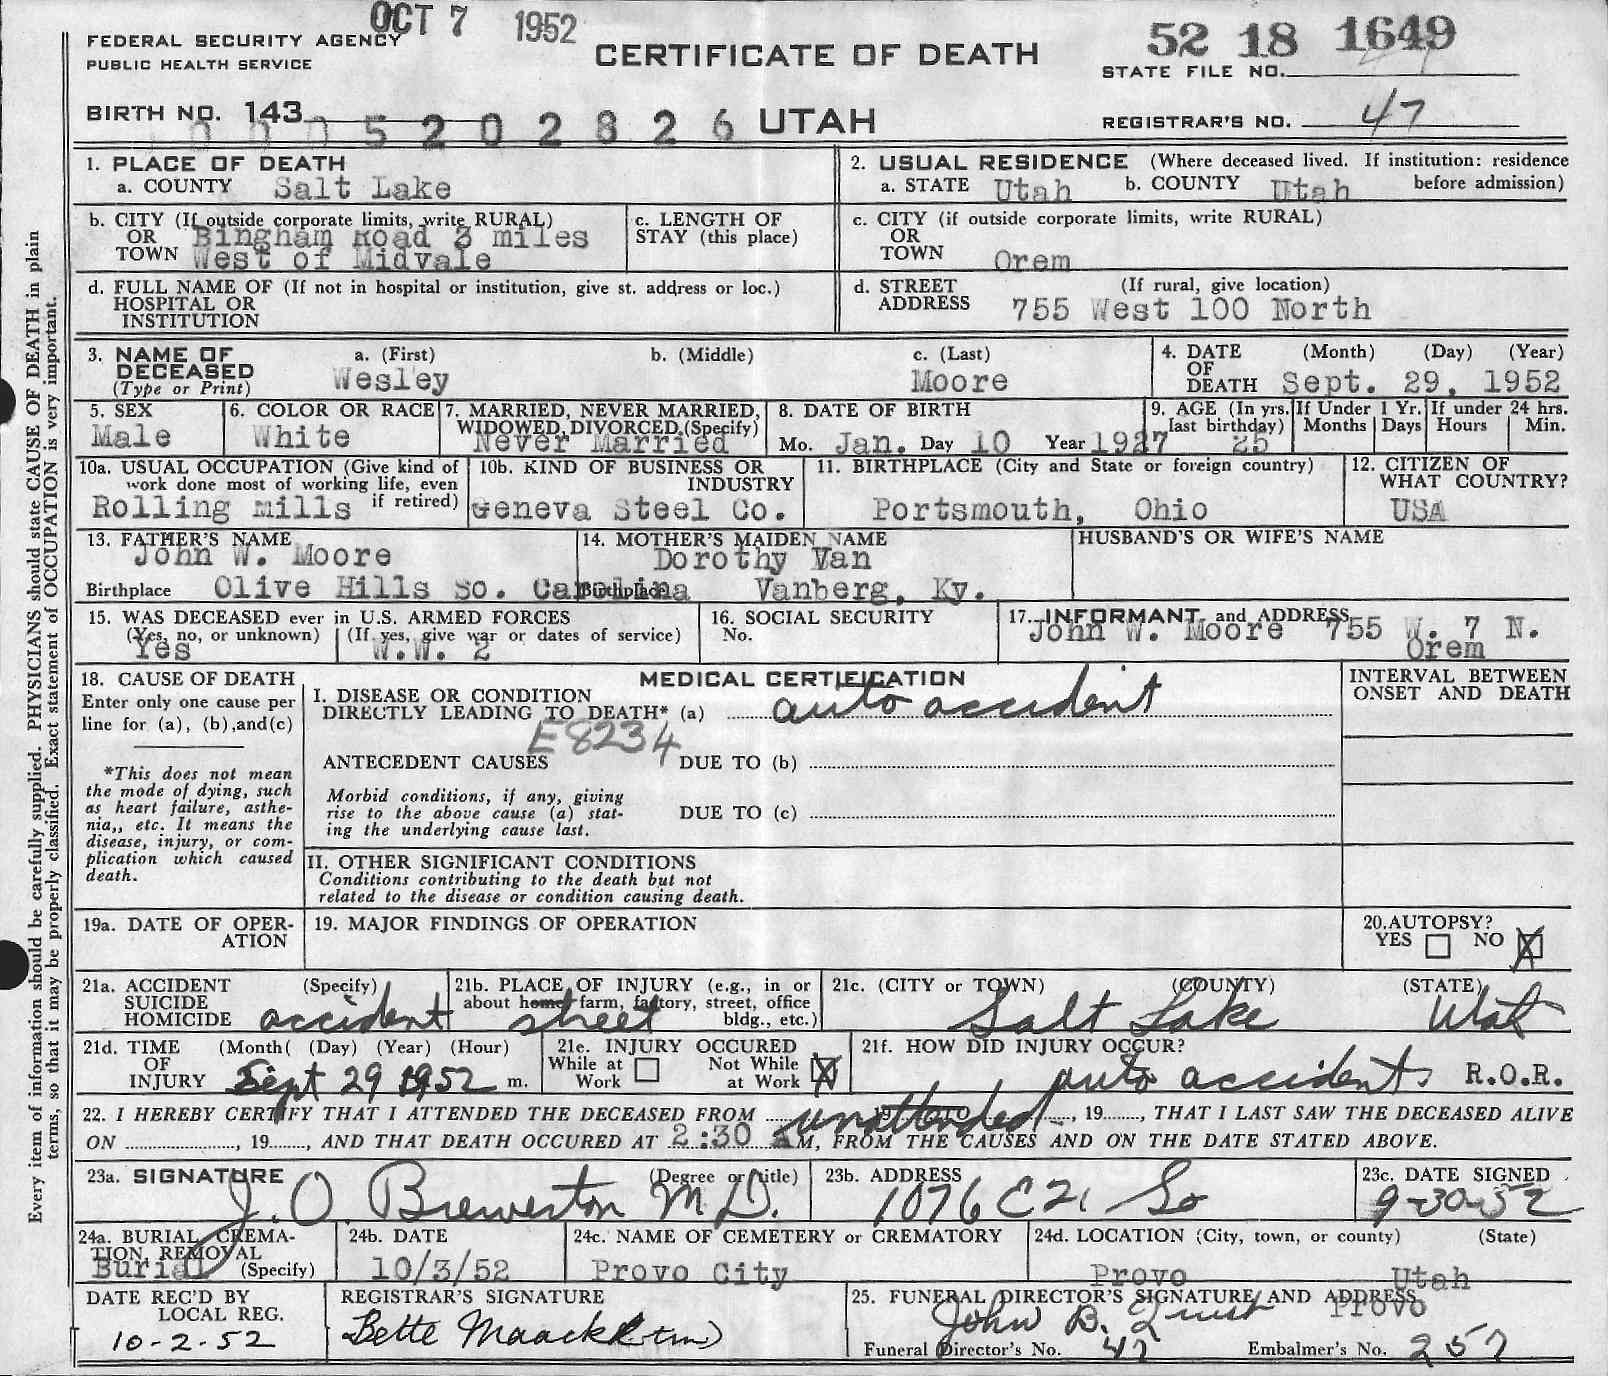 OCT 7 1952
FEDERAL SECURITY AGENCY
PUBLIC HEALTH SERVICE
CERTIFICATE OF DEATH
52 18 1649
STATE FILE NO.
BIRTH NO. 143 52 0 2 8 2 6 UTAH
REGISTRAR'S NO. 47
1. PLACE OF DEATH
a. COUNTY Salt Lake
b. CITY (If outside corporate limits, write RURAL)
OR
TOWN
Bingham Road 3 miles
West of Midvale
c. LENGTH OF
STAY (this place)
d. FULL NAME OF (If not in hospital or institution, give st. address or loc.)
HOSPITAL OR
INSTITUTION
2. USUAL RESIDENCE (Where deceased lived. If institution: residence
a. STATE Utah b. COUNTY Utah before admission)
c. CITY (if outside corporate limits, write RURAL)
OR
TOWN Orem
d. STREET (If rural, give location)
ADDRESS 755 West 100 North
3. NAME OF a. (First) b. (Middle) c. (Last)
DECEASED
(Type or Print) Wesley Moore
4. DATE (Month) (Day) (Year)
OF
DEATH Sept. 29, 1952
5. SEX
Male
6. COLOR OR RACE
White
7. MARRIED, NEVER MARRIED,
WIDOWED, DIVORCED (Specify)
Never Married
8. DATE OF BIRTH
Mo. Jan. Day 10 Year 1927
9. AGE (In yrs. last birthday) 25
If Under 1 Yr. Months Days
If under 24 hrs. Hours Min.
10a. USUAL OCCUPATION (Give kind of
work done most of working life, even
if retired)
Rolling mills
10b. KIND OF BUSINESS OR
INDUSTRY
Geneva Steel Co.
11. BIRTHPLACE (City and State or foreign country)
Portsmouth, Ohio
12. CITIZEN OF
WHAT COUNTRY?
USA
13. FATHER'S NAME
John W. Moore
Birthplace Olive Hills So. Carolina
14. MOTHER'S MAIDEN NAME
Dorothy Van
Birthplace Vanberg, Ky.
HUSBAND'S OR WIFE'S NAME
15. WAS DECEASED ever in U.S. ARMED FORCES
(Yes, no, or unknown) (If yes, give war or dates of service)
Yes W.W. 2
16. SOCIAL SECURITY
No.
17. INFORMANT and ADDRESS
John W. Moore 755 W. 7 N.
Orem
18. CAUSE OF DEATH
Enter only one cause per
line for (a), (b), and (c)
*This does not mean
the mode of dying, such
as heart failure, asthe-
nia,, etc. It means the
disease, injury, or com-
plication which caused
death.
MEDICAL CERTIFICATION
I. DISEASE OR CONDITION
DIRECTLY LEADING TO DEATH* (a) auto accident
E8234
ANTECEDENT CAUSES DUE TO (b)
Morbid conditions, if any, giving
rise to the above cause (a) stat-
ing the underlying cause last.
DUE TO (c)
II. OTHER SIGNIFICANT CONDITIONS
Conditions contributing to the death but not
related to the disease or condition causing death.
INTERVAL BETWEEN
ONSET AND DEATH
19a. DATE OF OPER-
ATION
19. MAJOR FINDINGS OF OPERATION
20. AUTOPSY?
YES NO X
21a. ACCIDENT (Specify)
SUICIDE
HOMICIDE accident
21b. PLACE OF INJURY (e.g., in or
about home, farm, factory, street, office
bldg., etc.)
street
21c. (CITY or TOWN) (COUNTY) (STATE)
Salt Lake Utah
21d. TIME (Month( (Day) (Year) (Hour)
OF
INJURY Sept 29 1952 m.
21e. INJURY OCCURED
While at Work
Not While at Work X
21f. HOW DID INJURY OCCUR?
auto accidents R.O.R.
22. I HEREBY CERTIFY THAT I ATTENDED THE DECEASED FROM unattended, 19 , THAT I LAST SAW THE DECEASED ALIVE
ON , 19 , AND THAT DEATH OCCURED AT 2:30 AM, FROM THE CAUSES AND ON THE DATE STATED ABOVE.
23a. SIGNATURE (Degree or title)
J. O Brewerton M D.
23b. ADDRESS
1076 E 21 So
23c. DATE SIGNED
9-30-52
24a. BURIAL, CREMA-
TION, REMOVAL
(Specify)
Burial
24b. DATE
10/3/52
24c. NAME OF CEMETERY or CREMATORY
Provo City
24d. LOCATION (City, town, or county) (State)
Provo Utah
DATE REC'D BY
LOCAL REG.
10-2-52
REGISTRAR'S SIGNATURE
Bette Maack
25. FUNERAL DIRECTOR'S SIGNATURE AND ADDRESS
John B. Provo
Funeral Director's No. 47 Embalmer's No. 257
Every item of information should be carefully supplied. PHYSICIANS should state CAUSE OF DEATH in plain
terms, so that it may be properly classified. Exact statement of OCCUPATION is very important.